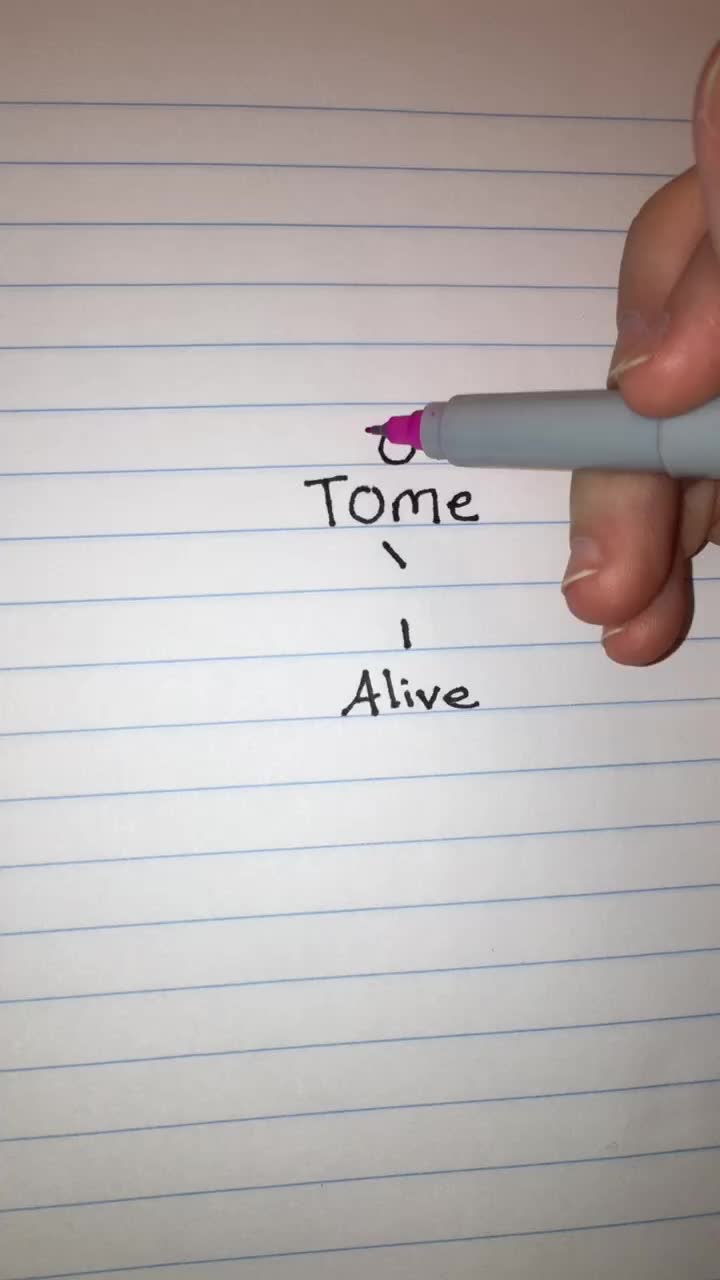 Tome
\
I
Alive